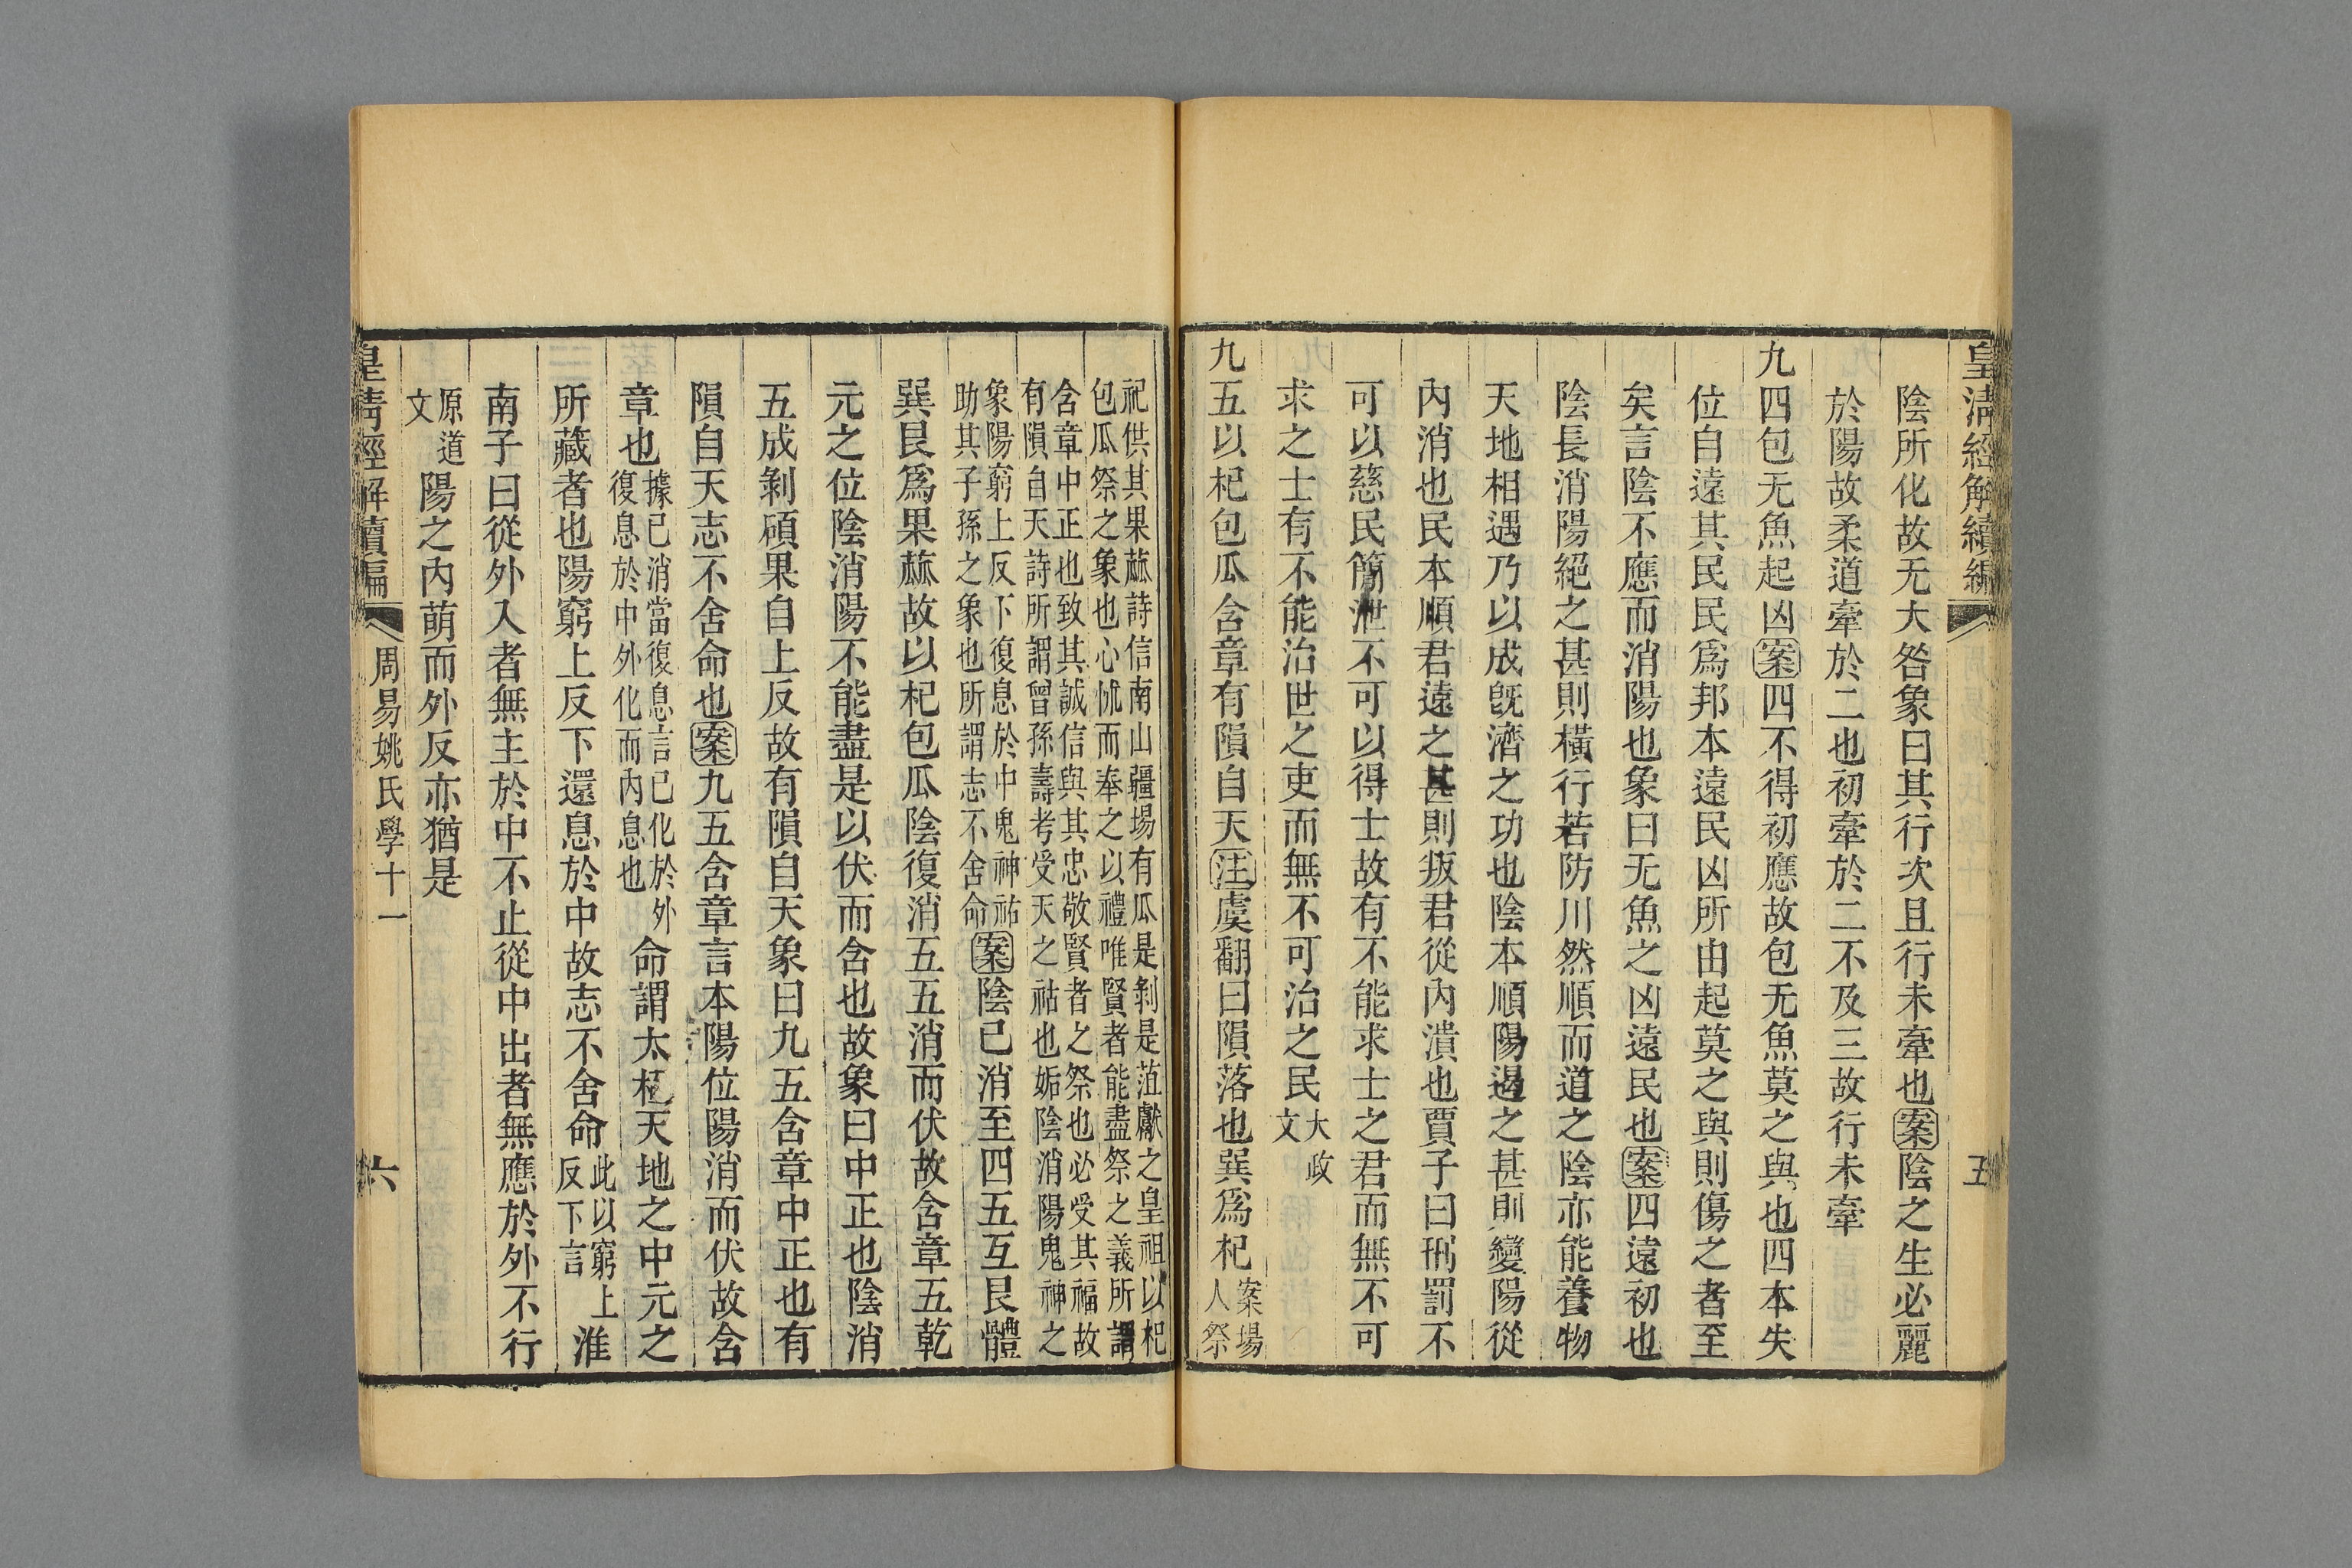 皇清經解續編
五
陰所化故无大咎象曰其行次且行未牽也案陰之生必麗
於陽故柔道牽於二也初牽於二不及三故行未牽
九四包无魚起凶案四不得初應故包无魚莫之與也四本失
位自遠其民民爲邦本遠民凶所由起莫之與則傷之者至
矣言陰不應而消陽也象曰无魚之凶遠民也案四遠初也
陰長消陽絕之甚則橫行若防川然順而道之陰亦能養物
天地相遇乃以成旣濟之功也陰本順陽遏之甚則變陽從
內消也民本順君遠之甚則叛君從內潰也賈子曰刑罰不
可以慈民簡泄不可以得士故有不能求士之君而無不可
求之士有不能治世之吏而無不可治之民大政
文
九五以杞包瓜含章有隕自天注虞翻曰隕落也巽爲杞案場
人祭
祀供其果蓏詩信南山疆場有瓜是剝是菹獻之皇祖以杞
包瓜祭之象也心怵而奉之以禮唯賢者能盡祭之義所謂
含章中正也致其誠信與其忠敬賢者之祭也必受其福故
有隕自天詩所謂曾孫壽考受天之祜也姤陰消陽鬼神之
象陽窮上反下復息於中鬼神祐
助其子孫之象也所謂志不舍命案陰已消至四五互艮體
巽艮爲果蓏故以杞包瓜陰復消五五消而伏故含章五乾
元之位陰消陽不能盡是以伏而含也故象曰中正也陰消
五成剝碩果自上反故有隕自天象曰九五含章中正也有
隕自天志不舍命也案九五含章言本陽位陽消而伏故含
章也據已消當復息言已化於外
復息於中外化而內息也命謂太極天地之中元之
所藏者也陽窮上反下還息於中故志不舍命此以窮上
反下言淮
南子曰從外入者無主於中不止從中出者無應於外不行
原道
文陽之內萌而外反亦猶是
皇清經解續編
周易姚氏學十一
六